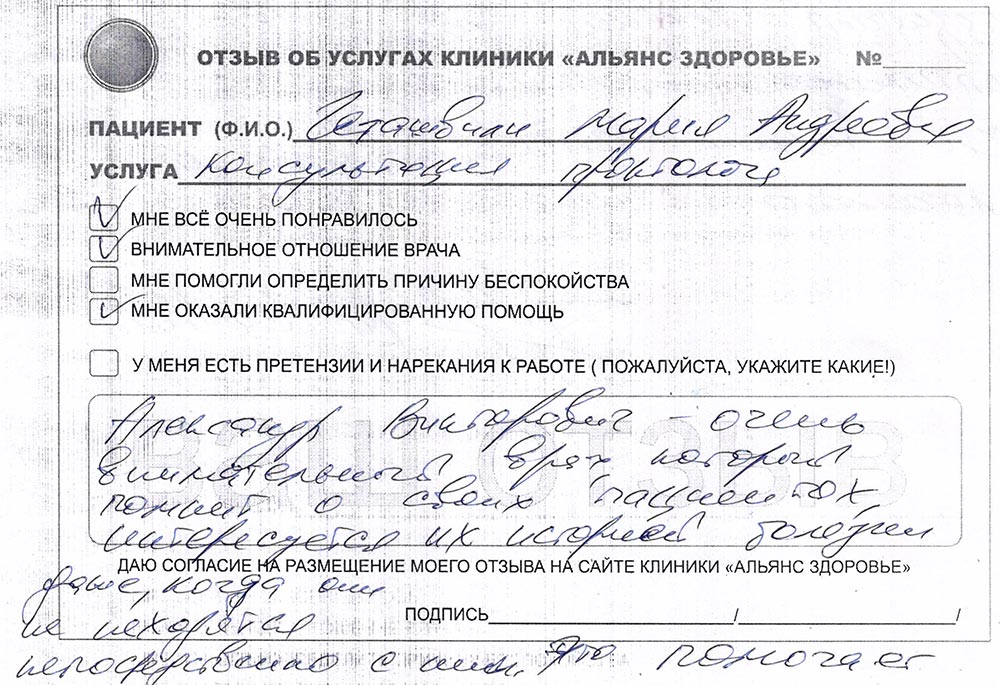 ОТЗЫВ ОБ УСЛУГАХ КЛИНИКИ «АЛЬЯНС ЗДОРОВЬЕ» №
ПАЦИЕНТ (Ф.И.О.) Мария Андреевна
УСЛУГА консультация проктолога
МНЕ ВСЁ ОЧЕНЬ ПОНРАВИЛОСЬ
ВНИМАТЕЛЬНОЕ ОТНОШЕНИЕ ВРАЧА
МНЕ ПОМОГЛИ ОПРЕДЕЛИТЬ ПРИЧИНУ БЕСПОКОЙСТВА
МНЕ ОКАЗАЛИ КВАЛИФИЦИРОВАННУЮ ПОМОЩЬ
У МЕНЯ ЕСТЬ ПРЕТЕНЗИИ И НАРЕКАНИЯ К РАБОТЕ ( ПОЖАЛУЙСТА, УКАЖИТЕ КАКИЕ!)
Александр Викторович - очень
внимательный врач который
помнит о своих пациентах,
интересуется их историей болезни
ДАЮ СОГЛАСИЕ НА РАЗМЕЩЕНИЕ МОЕГО ОТЗЫВА НА САЙТЕ КЛИНИКИ «АЛЬЯНС ЗДОРОВЬЕ»
даже, когда они
ПОДПИСЬ / /
не находятся
непосредственно с ним. Это помогает